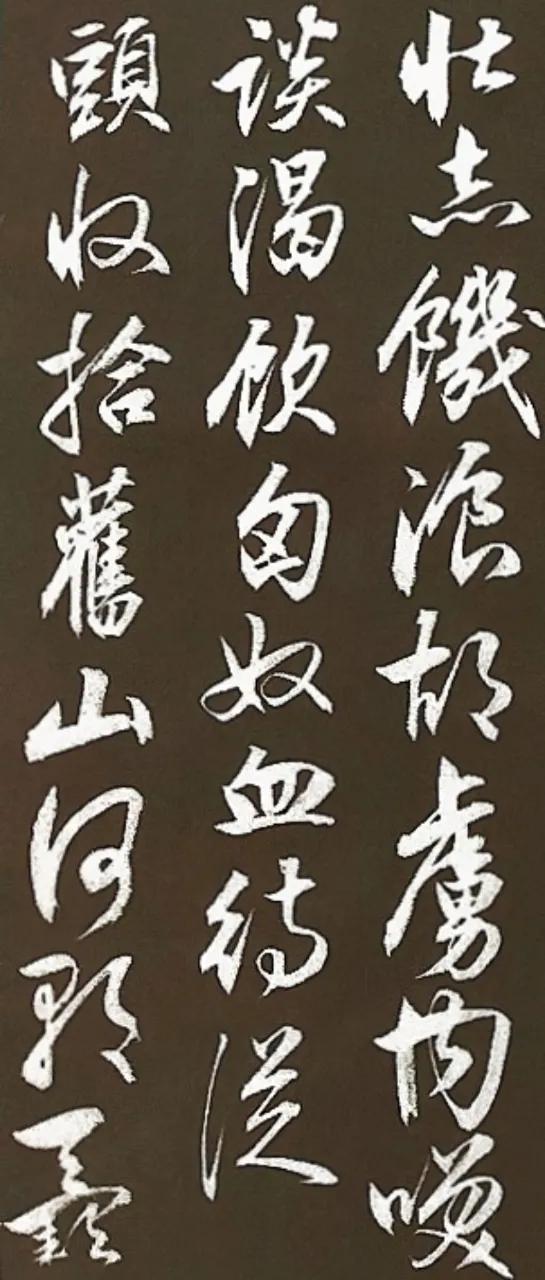 壯志饑湌胡虜肉咲
談渴飲匈奴血待從
頭收拾舊山河朝天闕